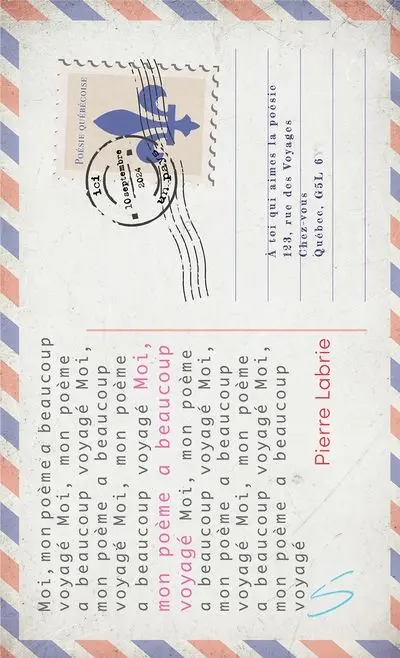 Moi, mon poème a beaucoup
voyagé Moi, mon poème
a beaucoup voyagé Moi,
mon poème a beaucoup
voyagé Moi, mon poème
a beaucoup voyagé Moi,
mon poème a beaucoup
voyagé Moi, mon poème
a beaucoup voyagé Moi,
mon poème a beaucoup
voyagé Moi, mon poème
a beaucoup voyagé Moi,
mon poème a beaucoup
voyagé
Pierre Labrie
POÉSIE QUÉBÉCOISE
ici
10 septembre
2024
un pays
À toi qui aimes la poésie
123, rue des Voyages
Chez-vous
Québec, G5L